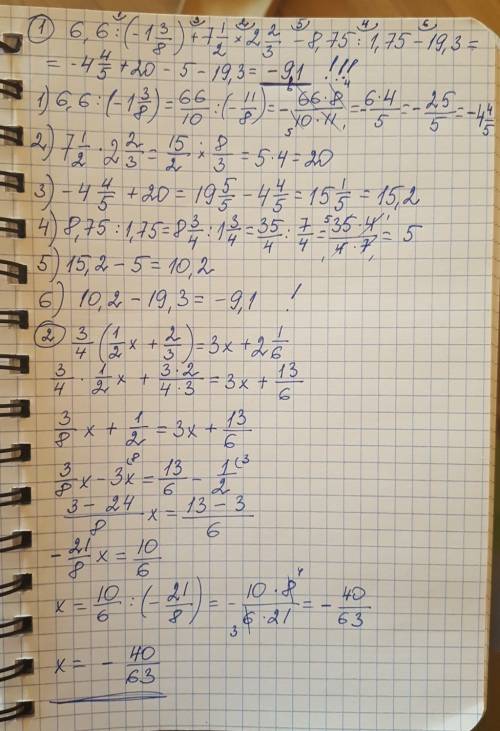 ① 6,6 : (-1 3/8) + 7 1/2 × 2 2/3 - 8,75 : 1,75 - 19,3 =
= -4 4/5 + 20 - 5 - 19,3 = -9,1 !!!
1) 6,6 : (-1 3/8) = 66/10 : (-11/8) = - 66·8/10·11 = -6·4/5 = -25/5 = -4 4/5
2) 7 1/2 · 2 2/3 = 15/2 × 8/3 = 5·4 = 20
3) -4 4/5 + 20 = 19 5/5 - 4 4/5 = 15 1/5 = 15,2
4) 8,75 : 1,75 = 8 3/4 : 1 3/4 = 35/4 : 7/4 = 35·4/4·7 = 5
5) 15,2 - 5 = 10,2
6) 10,2 - 19,3 = -9,1 !
② 3/4 (1/2 x + 2/3) = 3x + 2 1/6
3/4 · 1/2 x + 3·2/4·3 = 3x + 13/6
3/8 x + 1/2 = 3x + 13/6
3/8 x - 3x = 13/6 - 1/2
3 - 24/8 x = 13 - 3/6
-21/8 x = 10/6
x = 10/6 : (-21/8) = - 10·8/6·21 = - 40/63
x = - 40/63